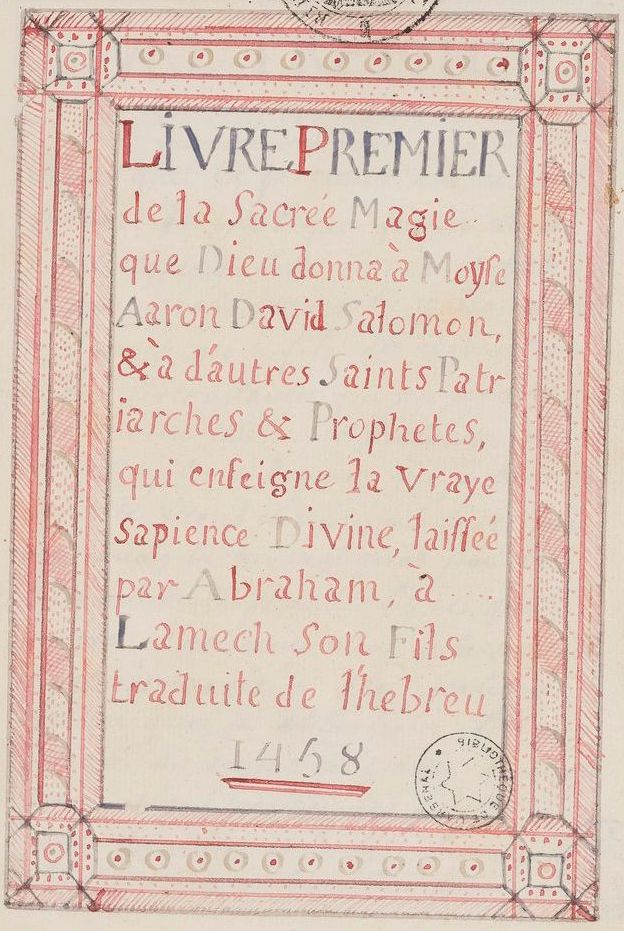 LiVRE PREMiER
de la Sacreé Magie
que Dieu donna à Moyſe
Aaron David Salomon,
& à d'autres Saints Patr
iarches & Prophetes,
qui enſeigne la vraye
sapience Divine, laiſſeé
par Abraham, à ....
Lamech son Fils
traduite de l'hebreu
1458
BIBLIOTHEQUE DE L'ARSENAL